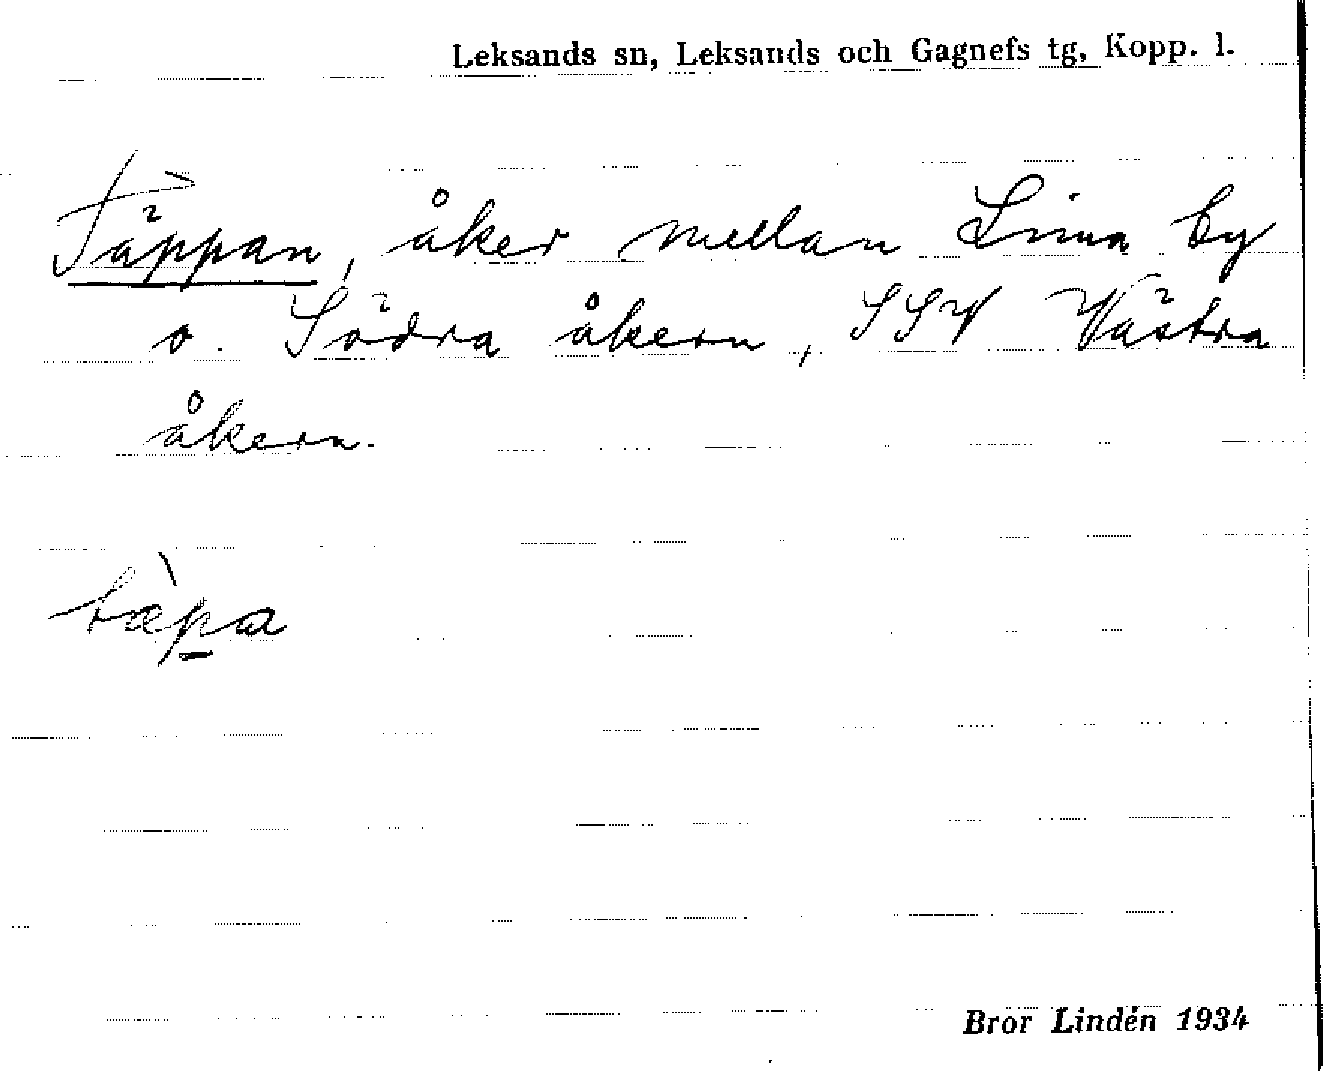 Leksands sn, Leksands och Gagnefs tg, Kopp. l.
Täppan, åker mellan Lima by
o. Södra åkern, SSV Västra
åkern.
tæ̀p̲a
Bror Lindén 1934